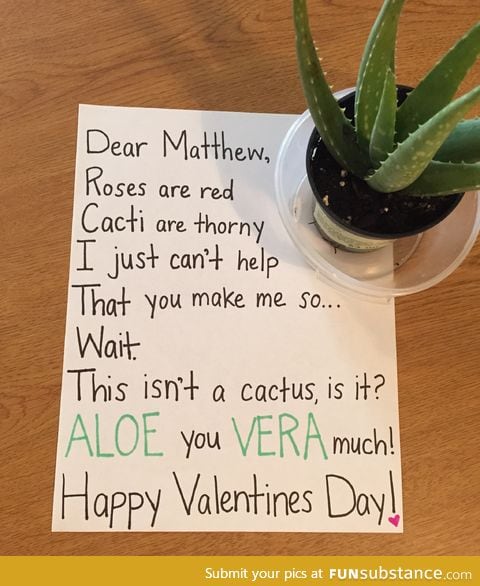 Dear Matthew,
Roses are red
Cacti are thorny
I just can't help
That you make me so...
Wait.
This isn't a cactus, is it?
ALOE you VERA much!
Happy Valentines Day!
Submit your pics at FUNsubstance.com